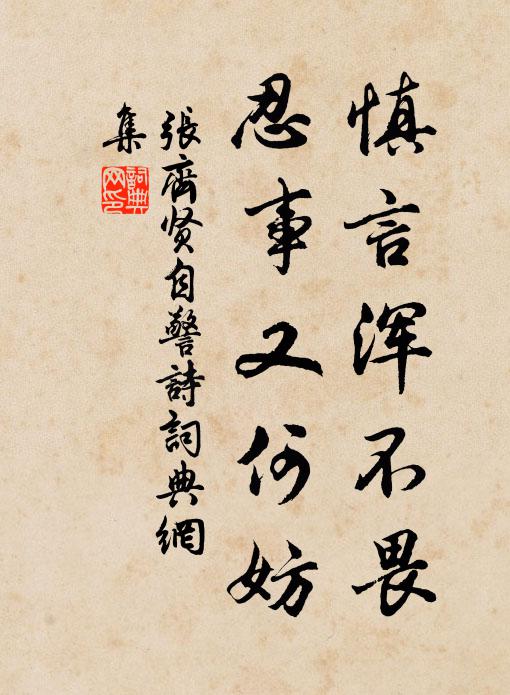 慎言浑不畏
忍事又何妨
張齊贤自警詩詞典網
集
詞典网印